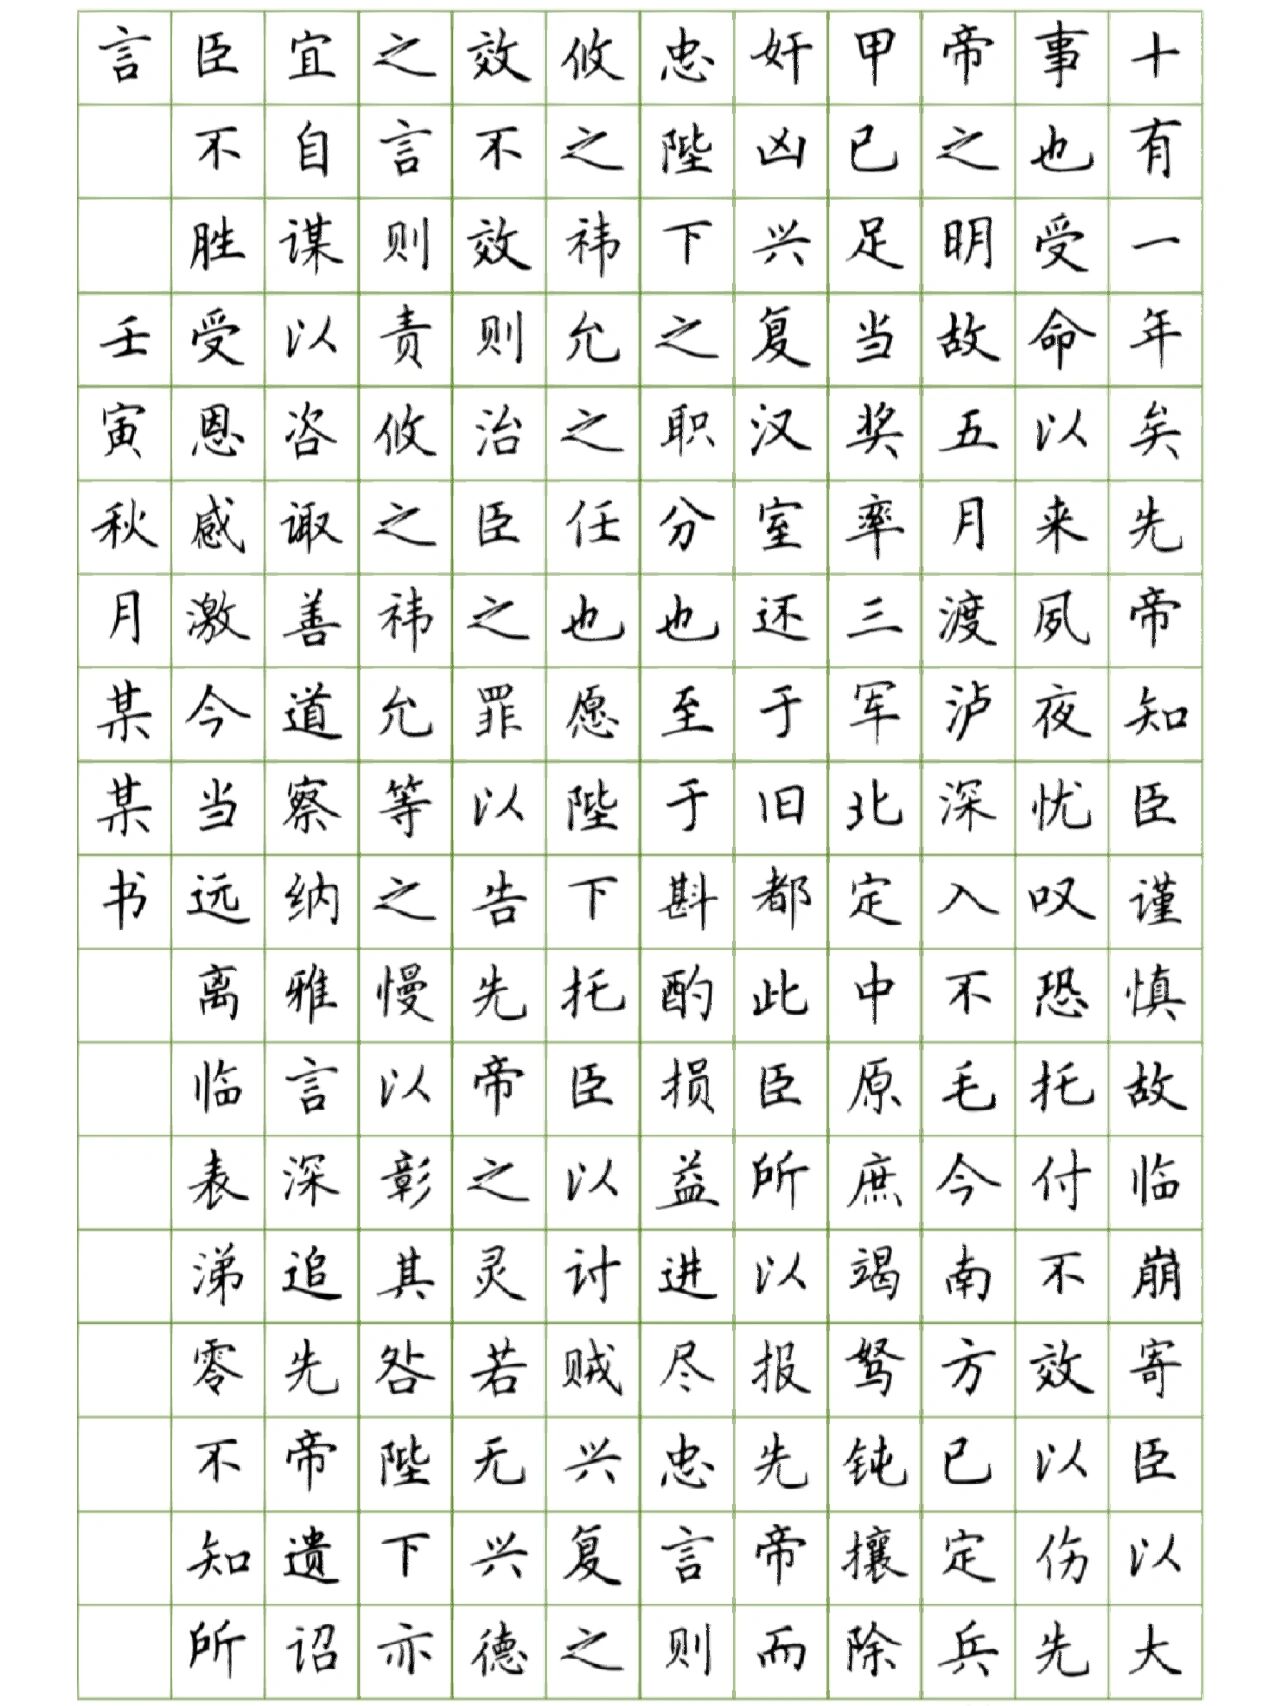 十有一年矣先帝知臣谨慎故临崩寄臣以大
事也受命以来夙夜忧叹恐托付不效以伤先
帝之明故五月渡泸深入不毛今南方已定兵
甲已足当奖率三军北定中原庶竭驽钝攘除
奸凶兴复汉室还于旧都此臣所以报先帝而
忠陛下之职分也至于斟酌损益进尽忠言则
攸之祎允之任也愿陛下托臣以讨贼兴复之
效不效则治臣之罪以告先帝之灵若无兴德
之言则责攸之祎允等之慢以彰其咎陛下亦
宜自谋以咨诹善道察纳雅言深追先帝遗诏
臣不胜受恩感激今当远离临表涕零不知所
言
壬寅秋月某某书